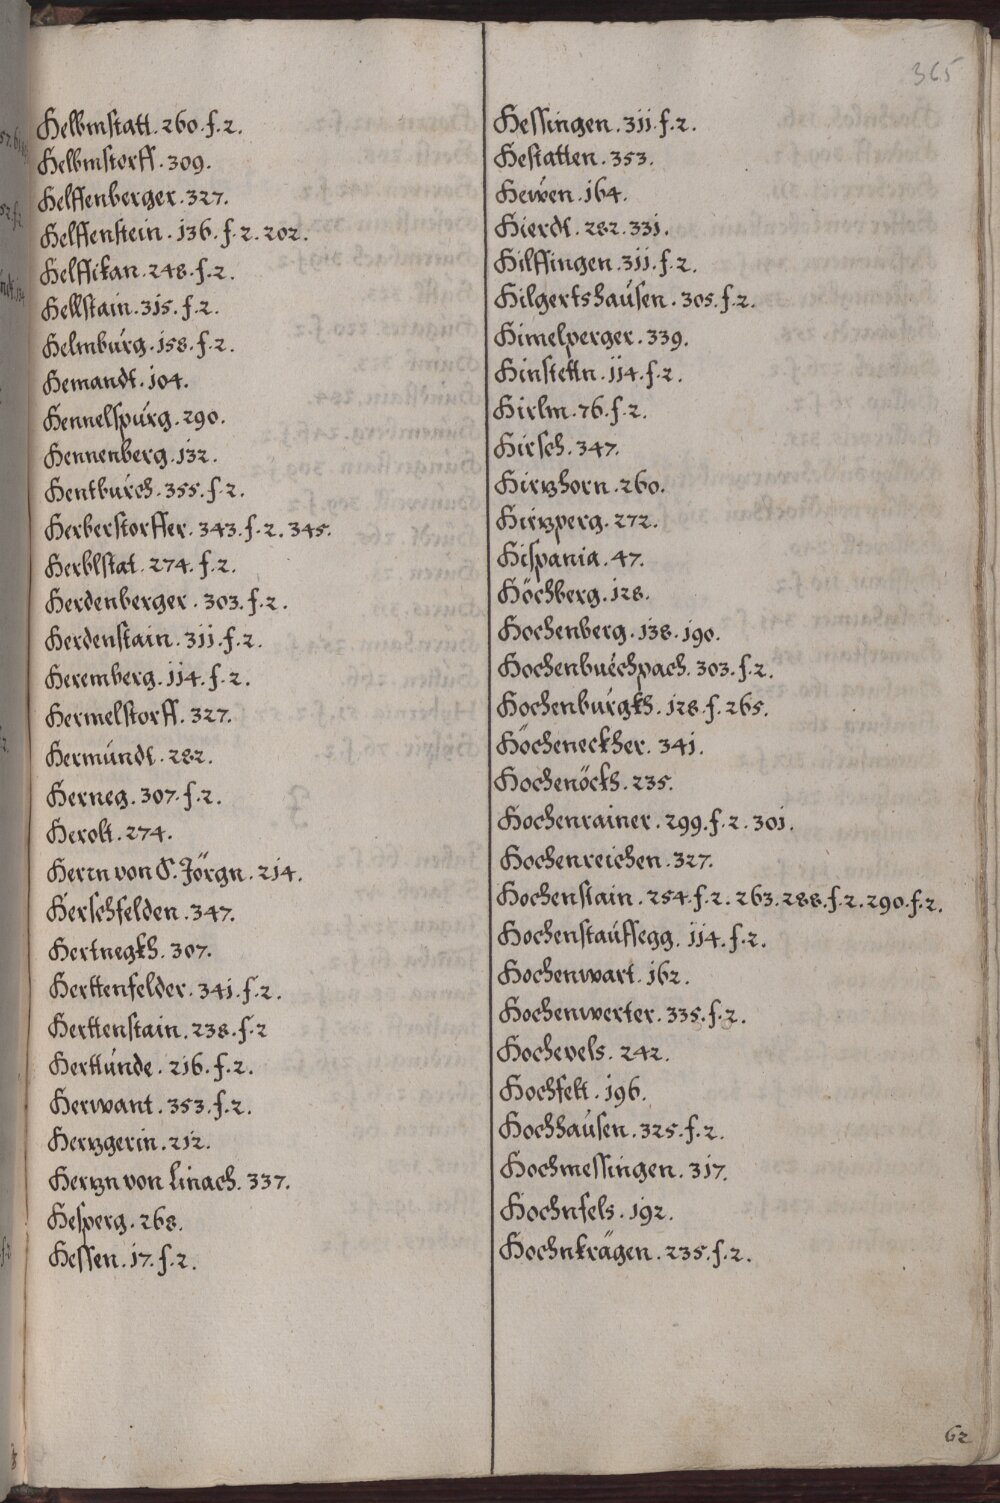 365
Helbmstatt. 260. f. 2.
Helbmstorff. 309.
Helffenberger. 327.
Helffenstein. 136. f. 2. 202.
Helffikan. 248. f. 2.
Hellstain. 315. f. 2.
Helmburg. 158. f. 2.
Hemandt. 104.
Hennelspurg. 290.
Hennenberg. 132.
Hentburch. 355. f. 2.
Herberstorffer. 343. f. 2. 345.
Herblstat. 274. f. 2.
Herdenberger. 303. f. 2.
Herdenstain. 311. f. 2.
Heremberg. 114. f. 2.
Hermelstorff. 327.
Hermündt. 282.
Herneg. 307. f. 2.
Herolt. 274.
Herrn von S. Jörgn. 214.
Herschfelden. 347.
Hertnegkh. 307.
Herttenfelder. 341. f. 2.
Herttenstain. 238. f. 2
Herttunde. 216. f. 2.
Herwant. 353. f. 2.
Herzgerin. 212.
Herzn von Linach. 337.
Hesperg. 268.
Hessen. 17. f. 2.
Hessingen. 311. f. 2.
Hestatten. 353.
Hewen. 164.
Hierdt. 282. 331.
Hilffingen. 311. f. 2.
Hilgertshausen. 305. f. 2.
Himelperger. 339.
Hinstettn. 114. f. 2.
Hirlm. 76. f. 2.
Hirsch. 347.
Hirzhorn. 260.
Hirzperg. 272.
Hispania. 47.
Höchberg. 128.
Hochenberg. 138. 190.
Hochenbuechpach. 303. f. 2.
Hochenburgkh. 128. f. 265.
Höcheneckher. 341.
Hochenöckh. 235.
Hochenrainer. 299. f. 2. 301.
Hochenreichen. 327.
Hochenstain. 254. f. 2. 263. 288. f. 2. 290. f. 2.
Hochenstauffegg. 114. f. 2.
Hochenwart. 162.
Hochenwerter. 335. f. 2.
Hochevels. 242.
Hochfelt. 196.
Hochhausen. 325. f. 2.
Hochmessingen. 317.
Hochnfels. 192.
Hochnkrägen. 235. f. 2.
62